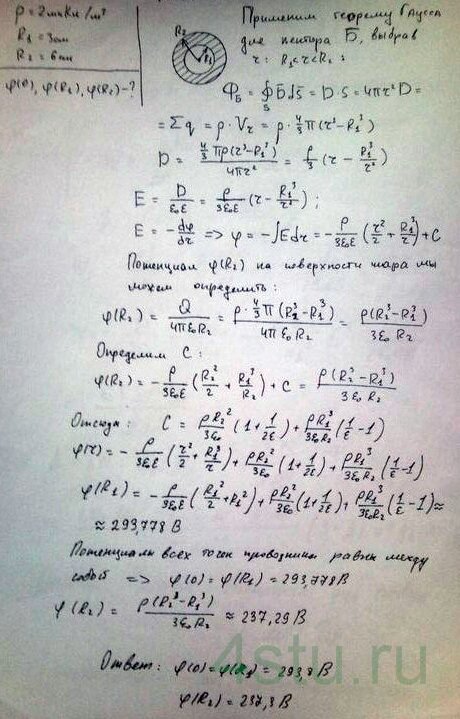 ρ = 2 мкКл/м³
R₁ = 3 см
R₂ = 6 см
φ(0), φ(R₁), φ(R₂) - ?
R₂
R₁
Применим теорему Гаусса
для вектора D̄, выбрав
r: R₁<r<R₂:
Ф_D = ∮_S D̄ dS̄ = D·S = 4πr²D =
= Σq = ρ·V_r = ρ·4/3 π(r³-R₁³)
D = (4/3 πρ(r³-R₁³))/(4πr²) = ρ/3 (r - R₁³/r²)
E = D/(ε₀ε) = ρ/(3ε₀ε) (r - R₁³/r²) ;
E = -dφ/dr => φ = -∫Edr = -ρ/(3ε₀ε) (r²/2 + R₁³/r) + C
Потенциал φ(R₂) на поверхности шара мы
можем определить:
φ(R₂) = Q/(4πε₀R₂) = (ρ·4/3 π(R₂³-R₁³))/(4πε₀R₂) = ρ(R₂³-R₁³)/(3ε₀R₂)
Определим C:
φ(R₂) = -ρ/(3ε₀ε) (R₂²/2 + R₁³/R₂) + C = ρ(R₂³-R₁³)/(3ε₀R₂)
Отсюда: C = ρR₂²/(3ε₀) (1+1/(2ε)) + ρR₁³/(3ε₀R₂) (1/ε - 1)
φ(r) = -ρ/(3ε₀ε) (r²/2 + R₁³/r) + ρR₂²/(3ε₀) (1+1/(2ε)) + ρR₁³/(3ε₀R₂) (1/ε - 1)
φ(R₁) = -ρ/(3ε₀ε) (R₁²/2 + R₁²) + ρR₂²/(3ε₀) (1+1/(2ε)) + ρR₁³/(3ε₀R₂) (1/ε - 1) ≈
≈ 293,778 В
Потенциалы всех точек проводника равны между
собой => φ(0) = φ(R₁) = 293,778 В
φ(R₂) = ρ(R₂³-R₁³)/(3ε₀R₂) ≈ 237,29 В
Ответ: φ(0) = φ(R₁) = 293,8 В
φ(R₂) = 237,3 В
4stu.ru